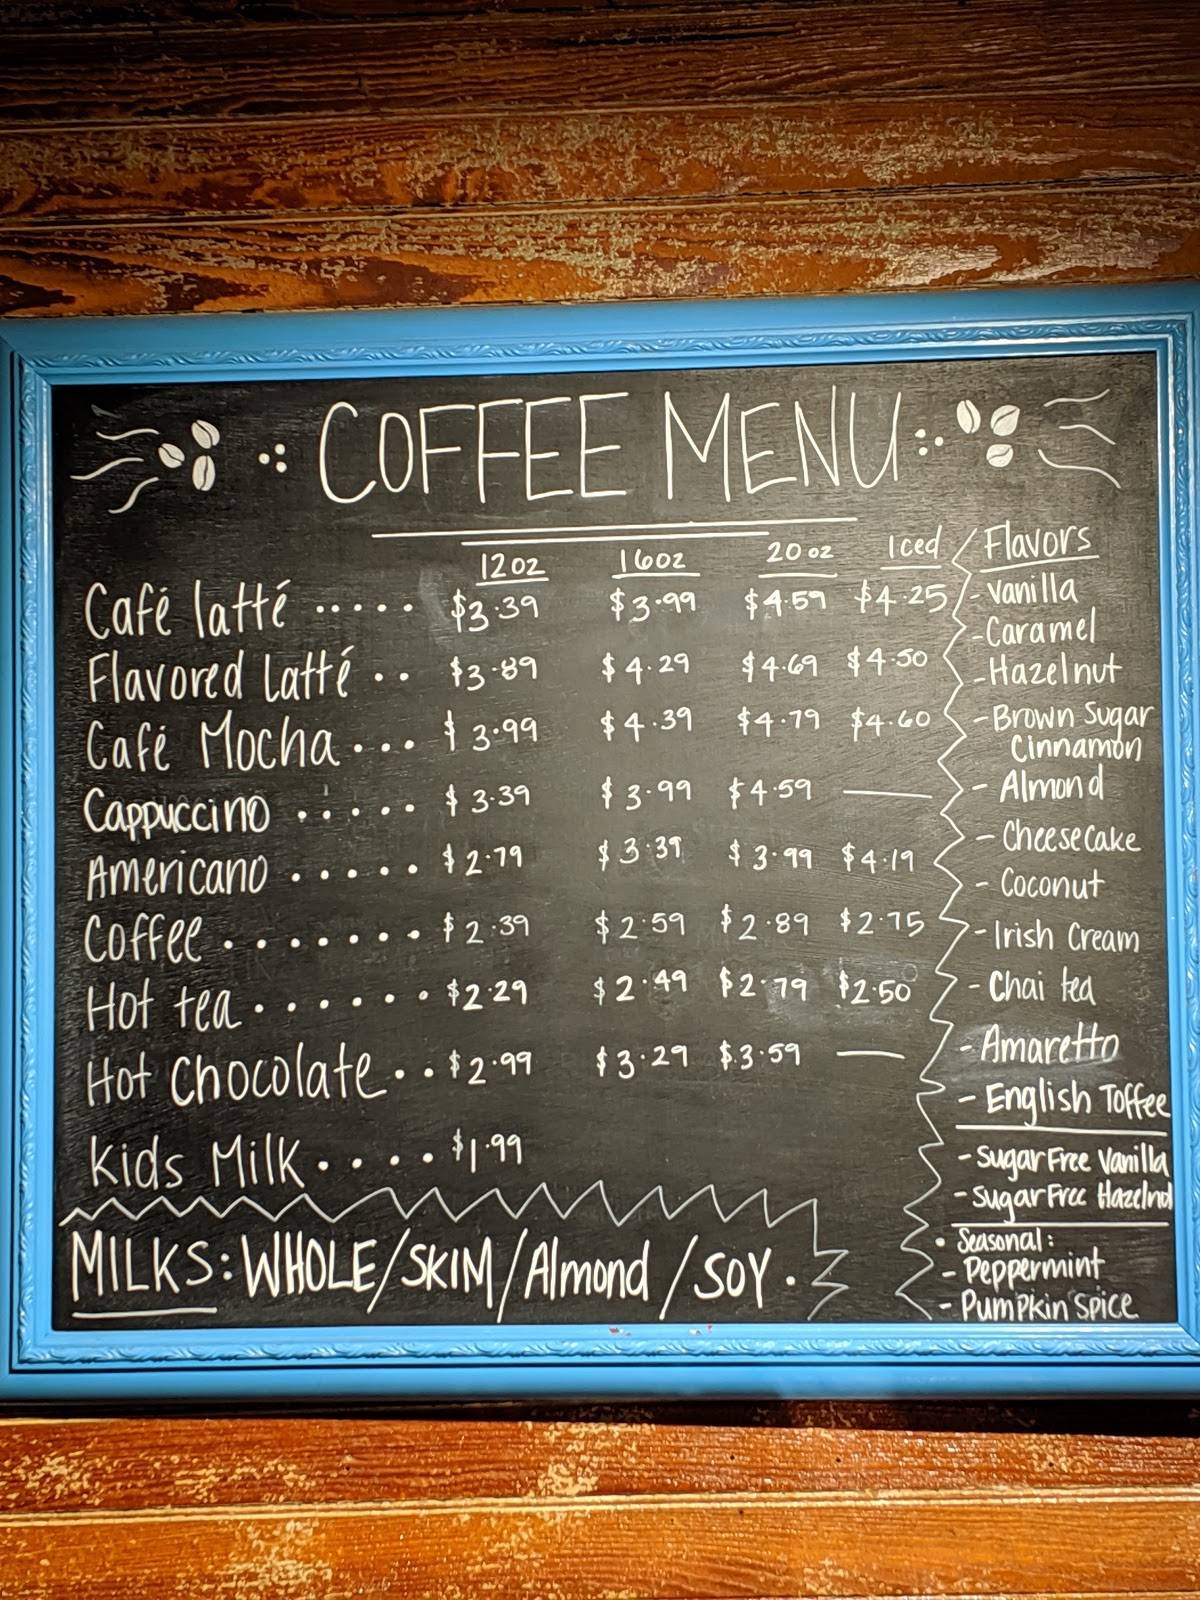 COFFEE MENU
12oz 16oz 20oz Iced
Café latté ..... $3.39 $3.99 $4.59 $4.25
Flavored Latté .. $3.89 $4.29 $4.69 $4.50
Café Mocha ... $3.99 $4.39 $4.79 $4.60
Cappuccino ..... $3.39 $3.99 $4.59 —
Americano ..... $2.79 $3.39 $3.99 $4.19
Coffee ....... $2.39 $2.59 $2.89 $2.75
Hot tea ...... $2.29 $2.49 $2.79 $2.50
Hot Chocolate .. $2.99 $3.29 $3.59 —
Kids Milk .... $1.99
MILKS: WHOLE/SKIM/Almond/SOY.
Flavors
- Vanilla
- Caramel
- Hazelnut
- Brown Sugar
Cinnamon
- Almond
- Cheesecake
- Coconut
- Irish Cream
- Chai tea
- Amaretto
- English Toffee
- Sugar Free Vanilla
- Sugar Free Hazelnut
• Seasonal:
- Peppermint
- Pumpkin Spice